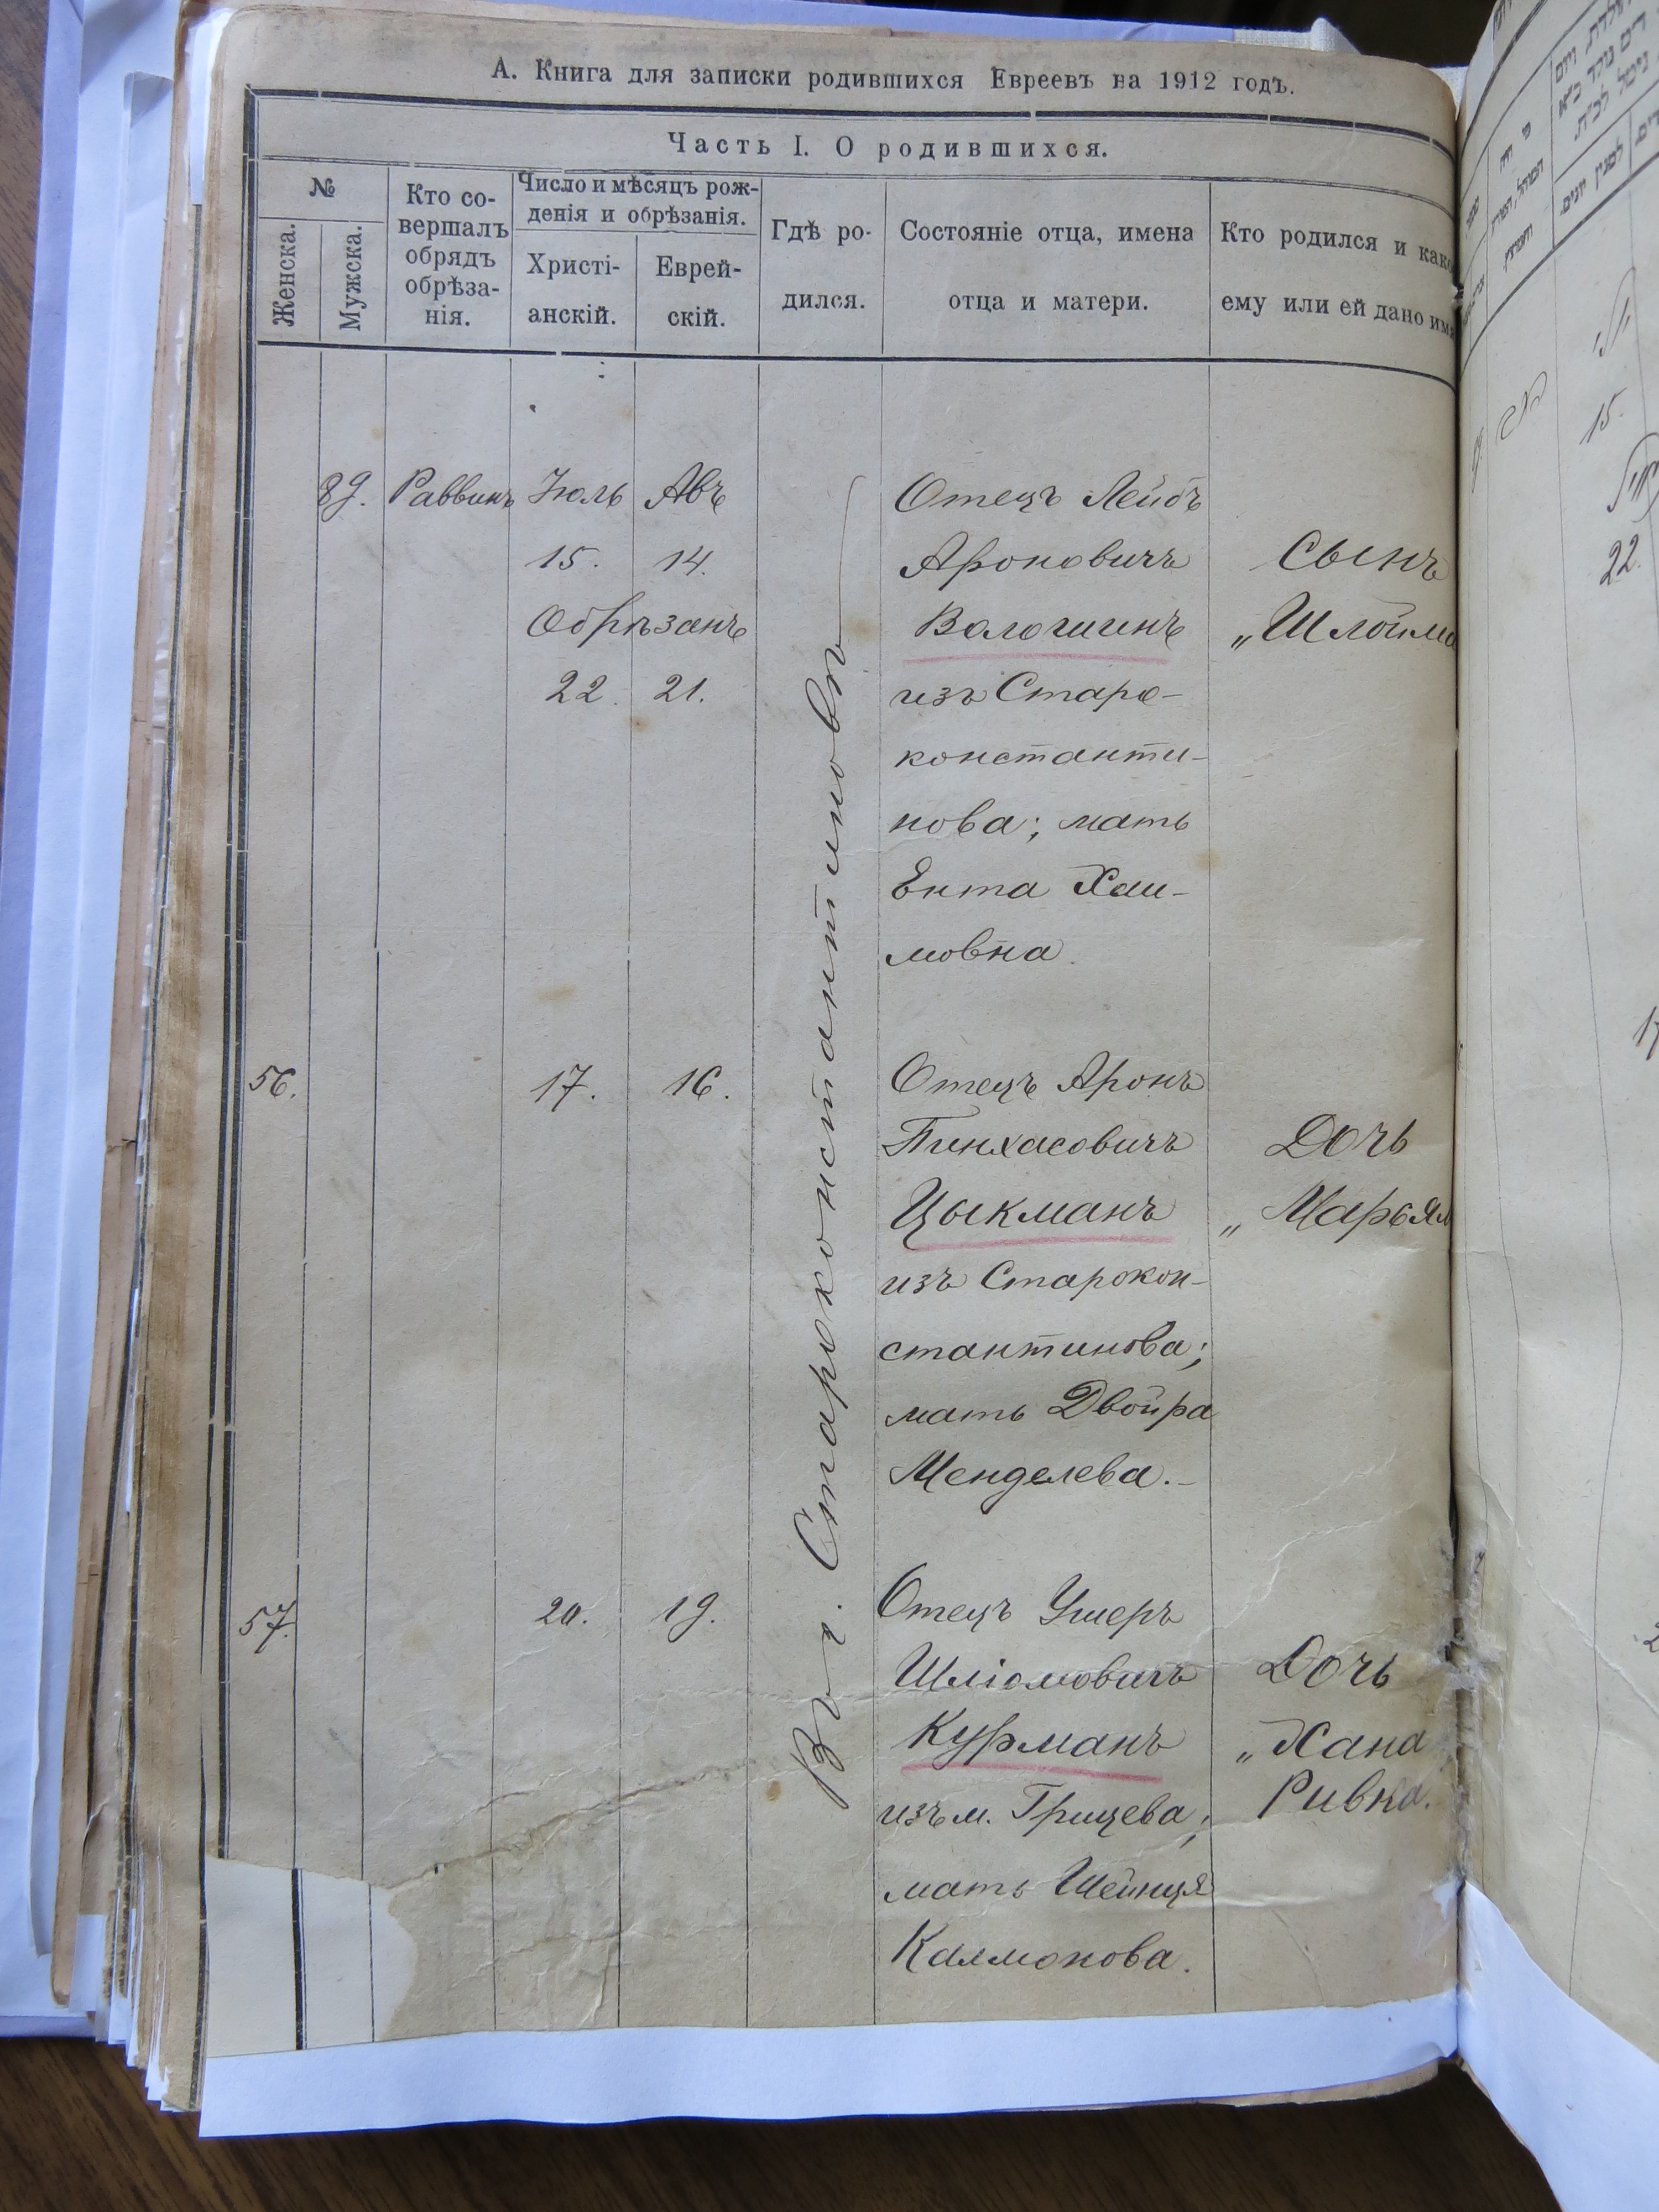 А. Книга для записки родившихся Евреевъ на 1912 годъ.
Часть I. О родившихся.
№
Женска.
Мужска.
Кто со-
вершалъ
обрядъ
обрѣза-
нія.
Число и мѣсяцъ рож-
денія и обрѣзанія.
Христі-
анскій.
Еврей-
скій.
Гдѣ ро-
дился.
Состояніе отца, имена
отца и матери.
Кто родился и како
ему или ей дано имя
89. Раввинъ Іюль Авъ
15. 14.
Обрѣзанъ
22. 21.
Въ г. Староконстантиновѣ
Отецъ Лейбъ
Ароновичъ
Вологинъ
изъ Старо-
константи-
нова; мать
Ента Хаи-
мовна.
Сынъ
„Шлойма
56. 17. 16.
Отецъ Аронъ
Пинхасовичъ
Цыкманъ
изъ Старокон-
стантинова;
мать Двойра
Менделева.-
Дочь
„Марьям
57. 20. 19.
Отецъ Ушеръ
Шліомовичъ
Курманъ
изъ м. Грицева;
мать Шейнця
Калмонова.
Дочь
„Хана
Ривка.
15.
22.